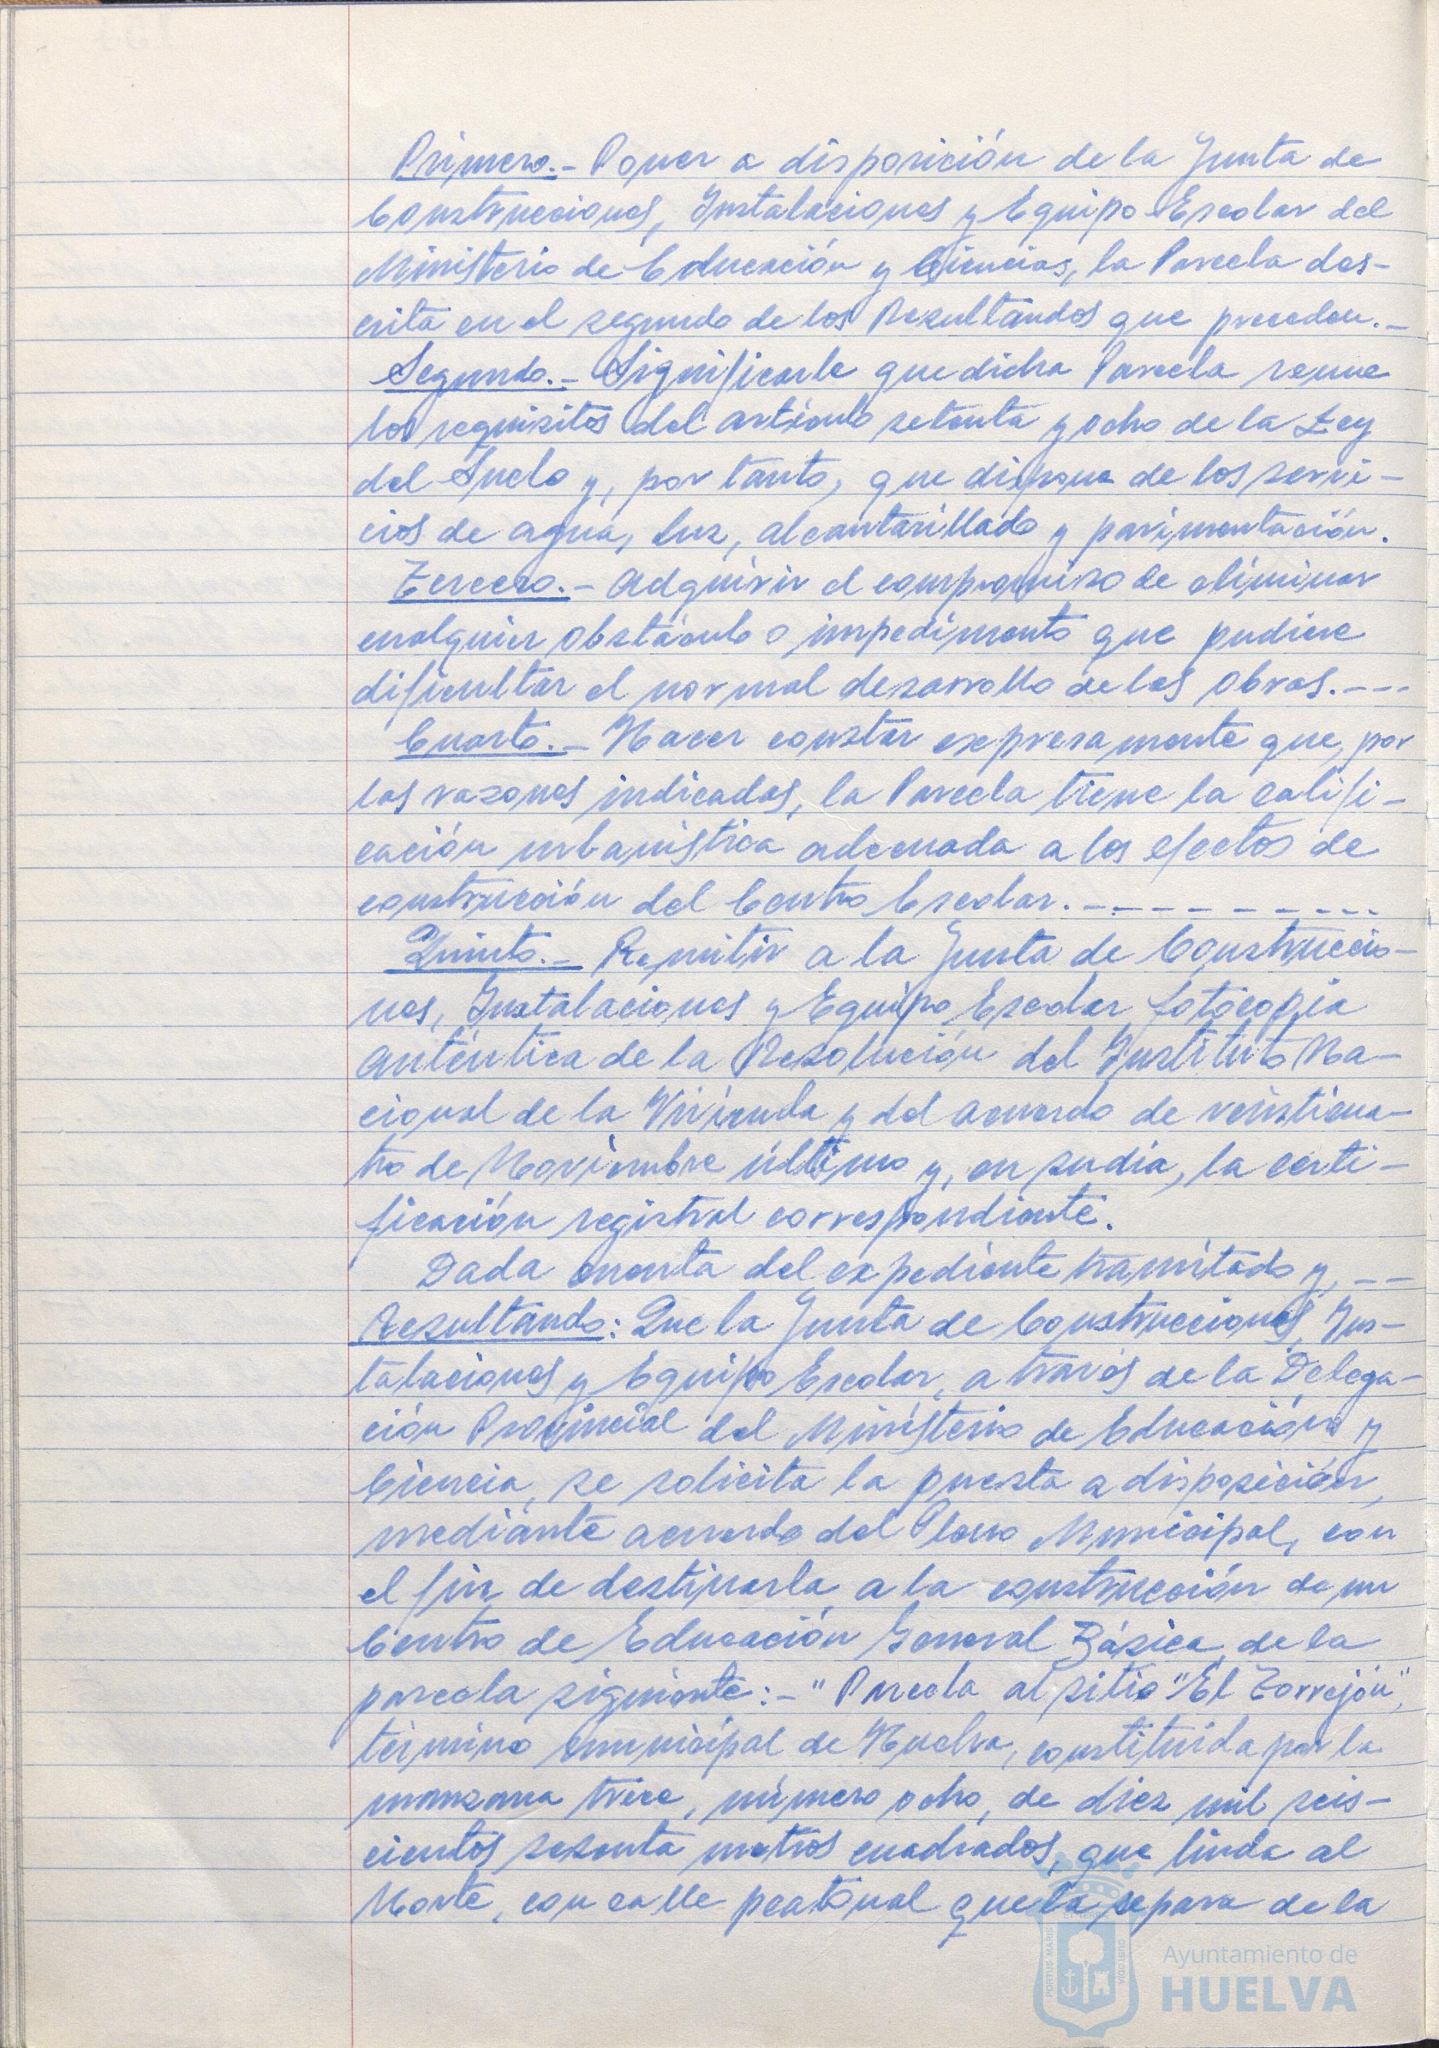 Primero.- Poner a disposición de la Junta de
Construcciones, Instalaciones y Equipo Escolar del
Ministerio de Educación y Ciencias, la Parcela des-
crita en el segundo de los Resultandos que preceden.-
Segundo.- Significarle que dicha Parcela reune
los requisitos del artículo setenta y ocho de la Ley
del Suelo y, por tanto, que dispone de los servi-
cios de agua, luz, alcantarillado y pavimentación.
Tercero.- Adquirir el compromiso de eliminar
cualquier obstáculo o impedimento que pudiere
dificultar el normal desarrollo de las obras.---
Cuarto.- Hacer constar expresamente que, por
las razones indicadas, la Parcela tiene la califi-
cación urbanística adecuada a los efectos de
construcción del Centro Escolar.----------
Quinto.- Remitir a la Junta de Construccio-
nes, Instalaciones y Equipo Escolar fotocopia
auténtica de la Resolución del Instituto Na-
cional de la Vivienda y del acuerdo de veinticua-
tro de Noviembre último y, en su día, la certi-
ficación registral correspondiente.
Dada cuenta del expediente tramitado y, --
Resultando: Que la Junta de Construcciones, Ins-
talaciones y Equipo Escolar, a través de la Delega-
ción Provincial del Ministerio de Educación y
Ciencia, se solicita la puesta a disposición,
mediante acuerdo del Pleno Municipal, con
el fin de destinarla a la construcción de un
Centro de Educación General Básica, de la
parcela siguiente:-"Parcela al sitio "El Torrejón",
término municipal de Huelva, constituida por la
manzana trece, número ocho, de diez mil seis-
cientos sesenta metros cuadrados, que linda al
Norte, con calle peatonal que la separa de la
PORTUS MARIS
ET TERRAE
CUSTODIA
Ayuntamiento de
HUELVA